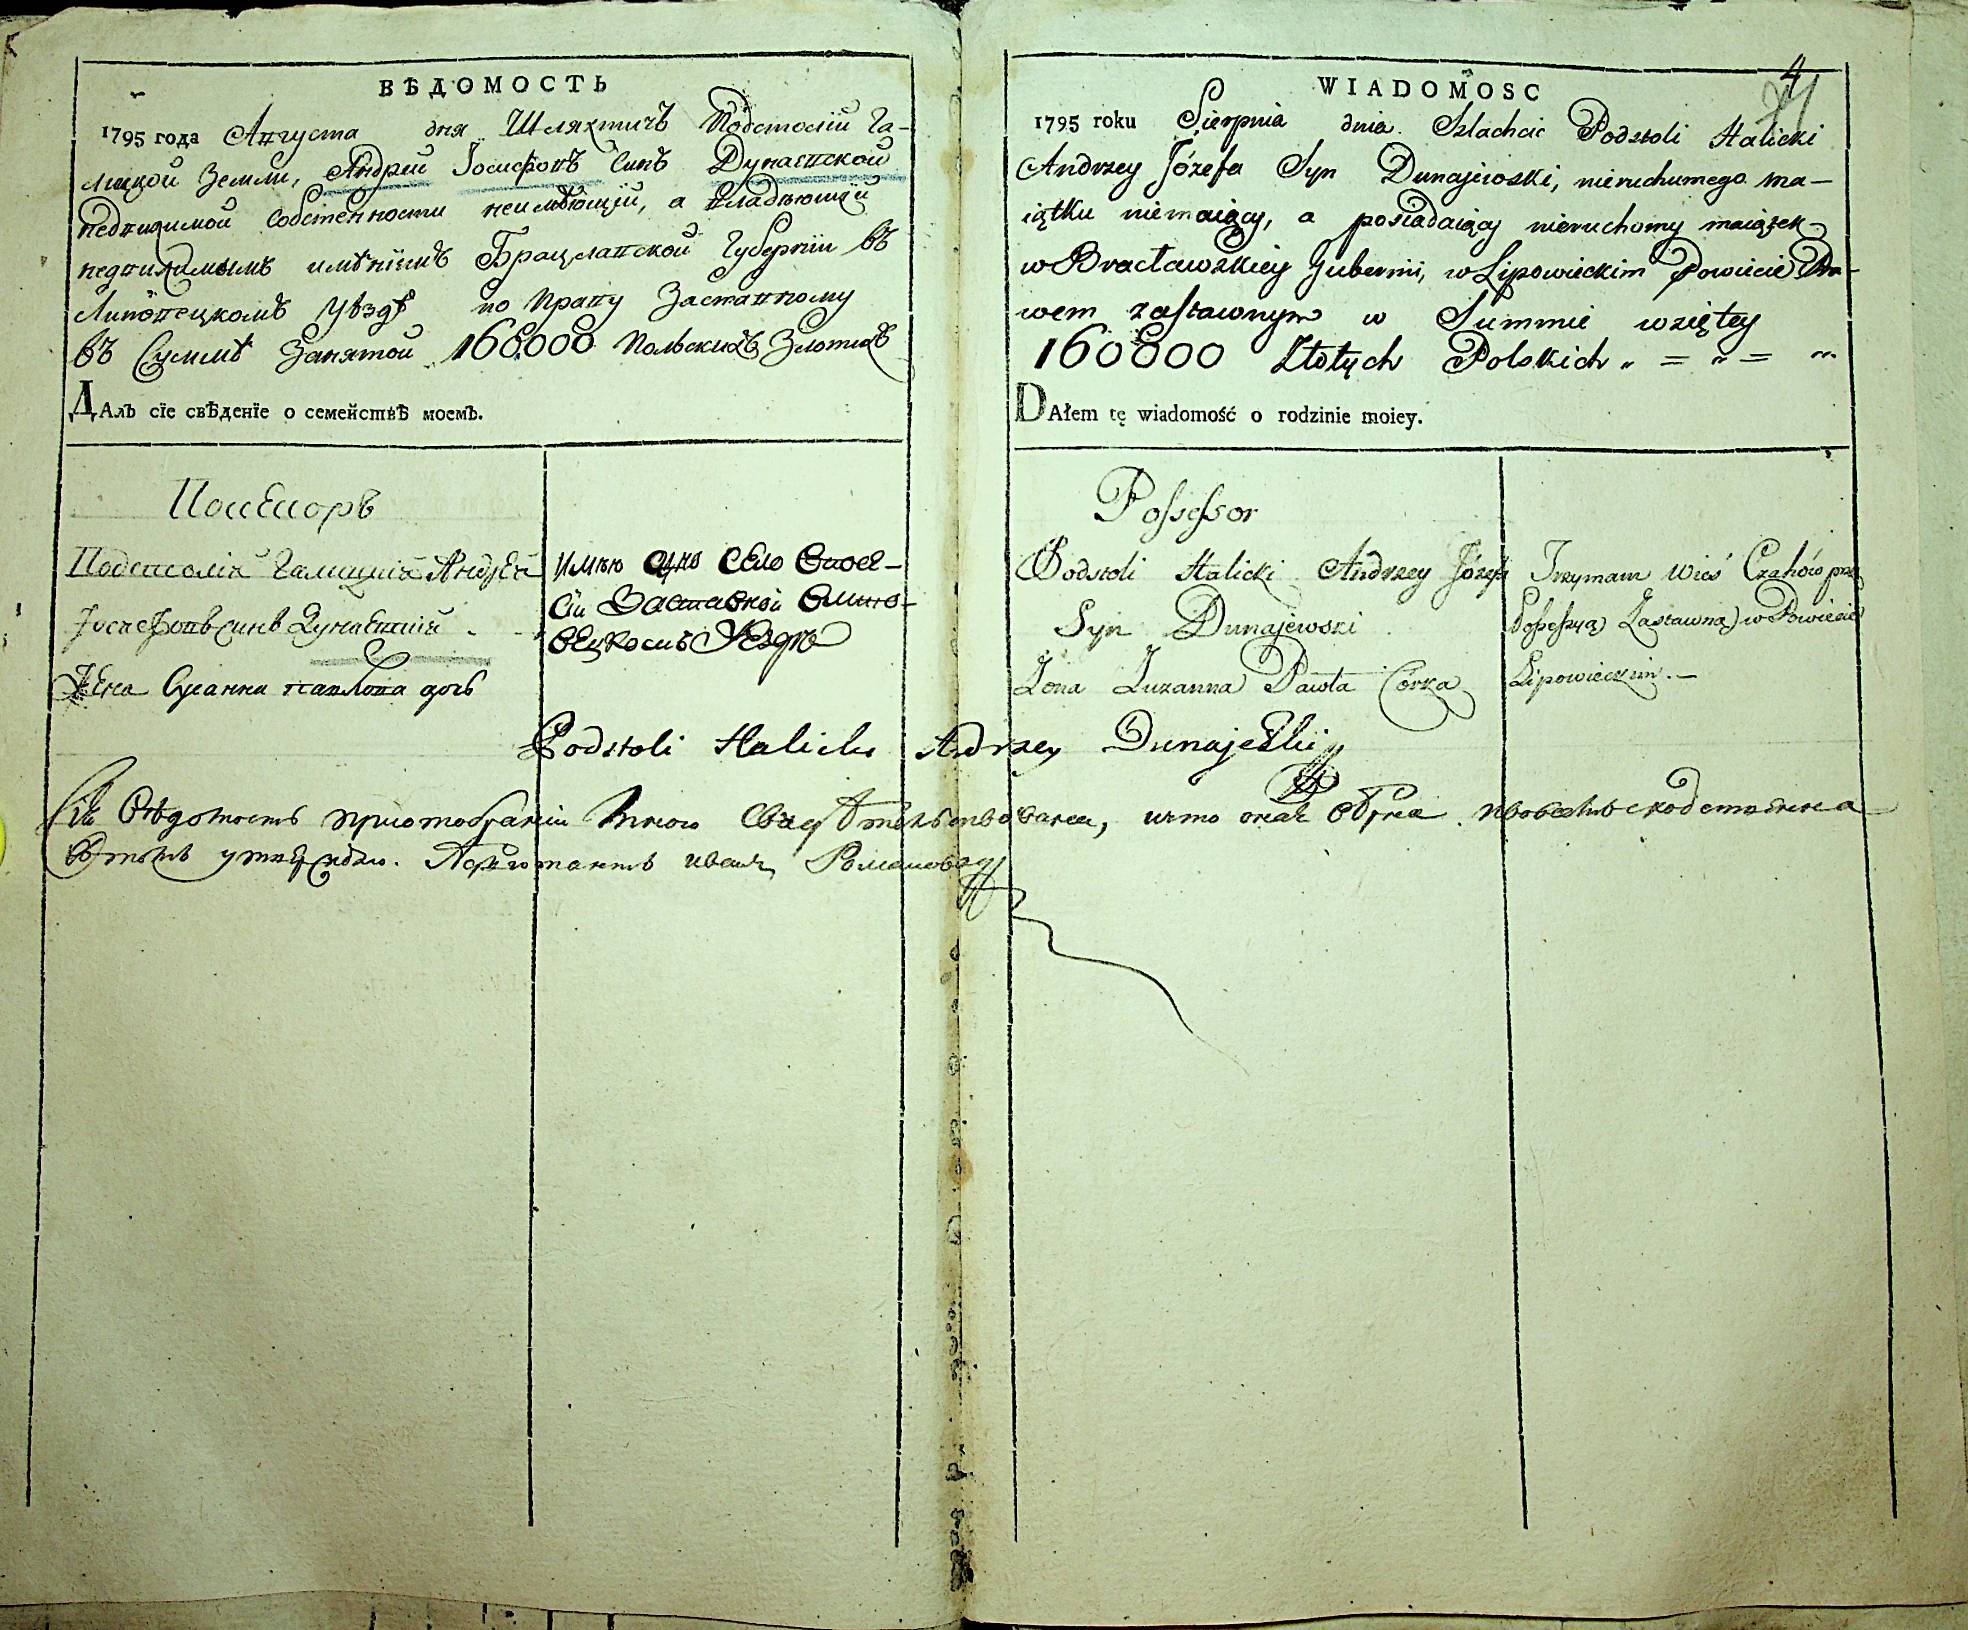 ВѢДОМОСТЬ
1795 года Августа дня Шляхтичъ Подстолій Га-
лицкой Земли, Андрей Іосифовъ Синъ Дунаевской
недвижимой собственности неимѣющій, а владѣющій
недвижимымъ имѣніимъ Брацлавской Губерніи въ
Липовецкомъ уѣздѣ по праву Заставному
въ Суммѣ Занятой 160000 Польскихъ Злотихъ
ДАлъ сїе свѣденїе о семействѣ моемъ.
Поссессоръ
Подстолій Галицкій Андрей
Іосифовъ синъ Дунаевскій
Жена Сузанна павлова дочь
имѣю одно село
Заставной
вецкомъ Уездѣ
4
WIADOMOSC
1795 roku Sierpnia dnia Szlachcic Podstoli Halicki
Andrzey Józefa Syn Dunajewski, nieruchomego ma-
iątku niemaiący, a posiadaiący nieruchomy maiątek
w Bracławskiey Gubernii, w Lipowieckim Powiecie Pra-
wem zastawnym w Summie wziętey
160000 Złotych Polskich „ = „ = „
DAłem tę wiadomość o rodzinie moiey.
Possessor
Podstoli Halicki Andrzey Józefa
Syn Dunajewski
Żona Zuzanna Pawła Córka
Trzymam Wieś Czahów prze
Possessyą Zastawną w Powiecie
Lipowieckim. –
Podstoli Halicki Andrzey Dunajewski
Сію Вѣдомость мною свидѣтельствована, что она вѣрна
въ томъ утверждаю. иванъ Романовъ